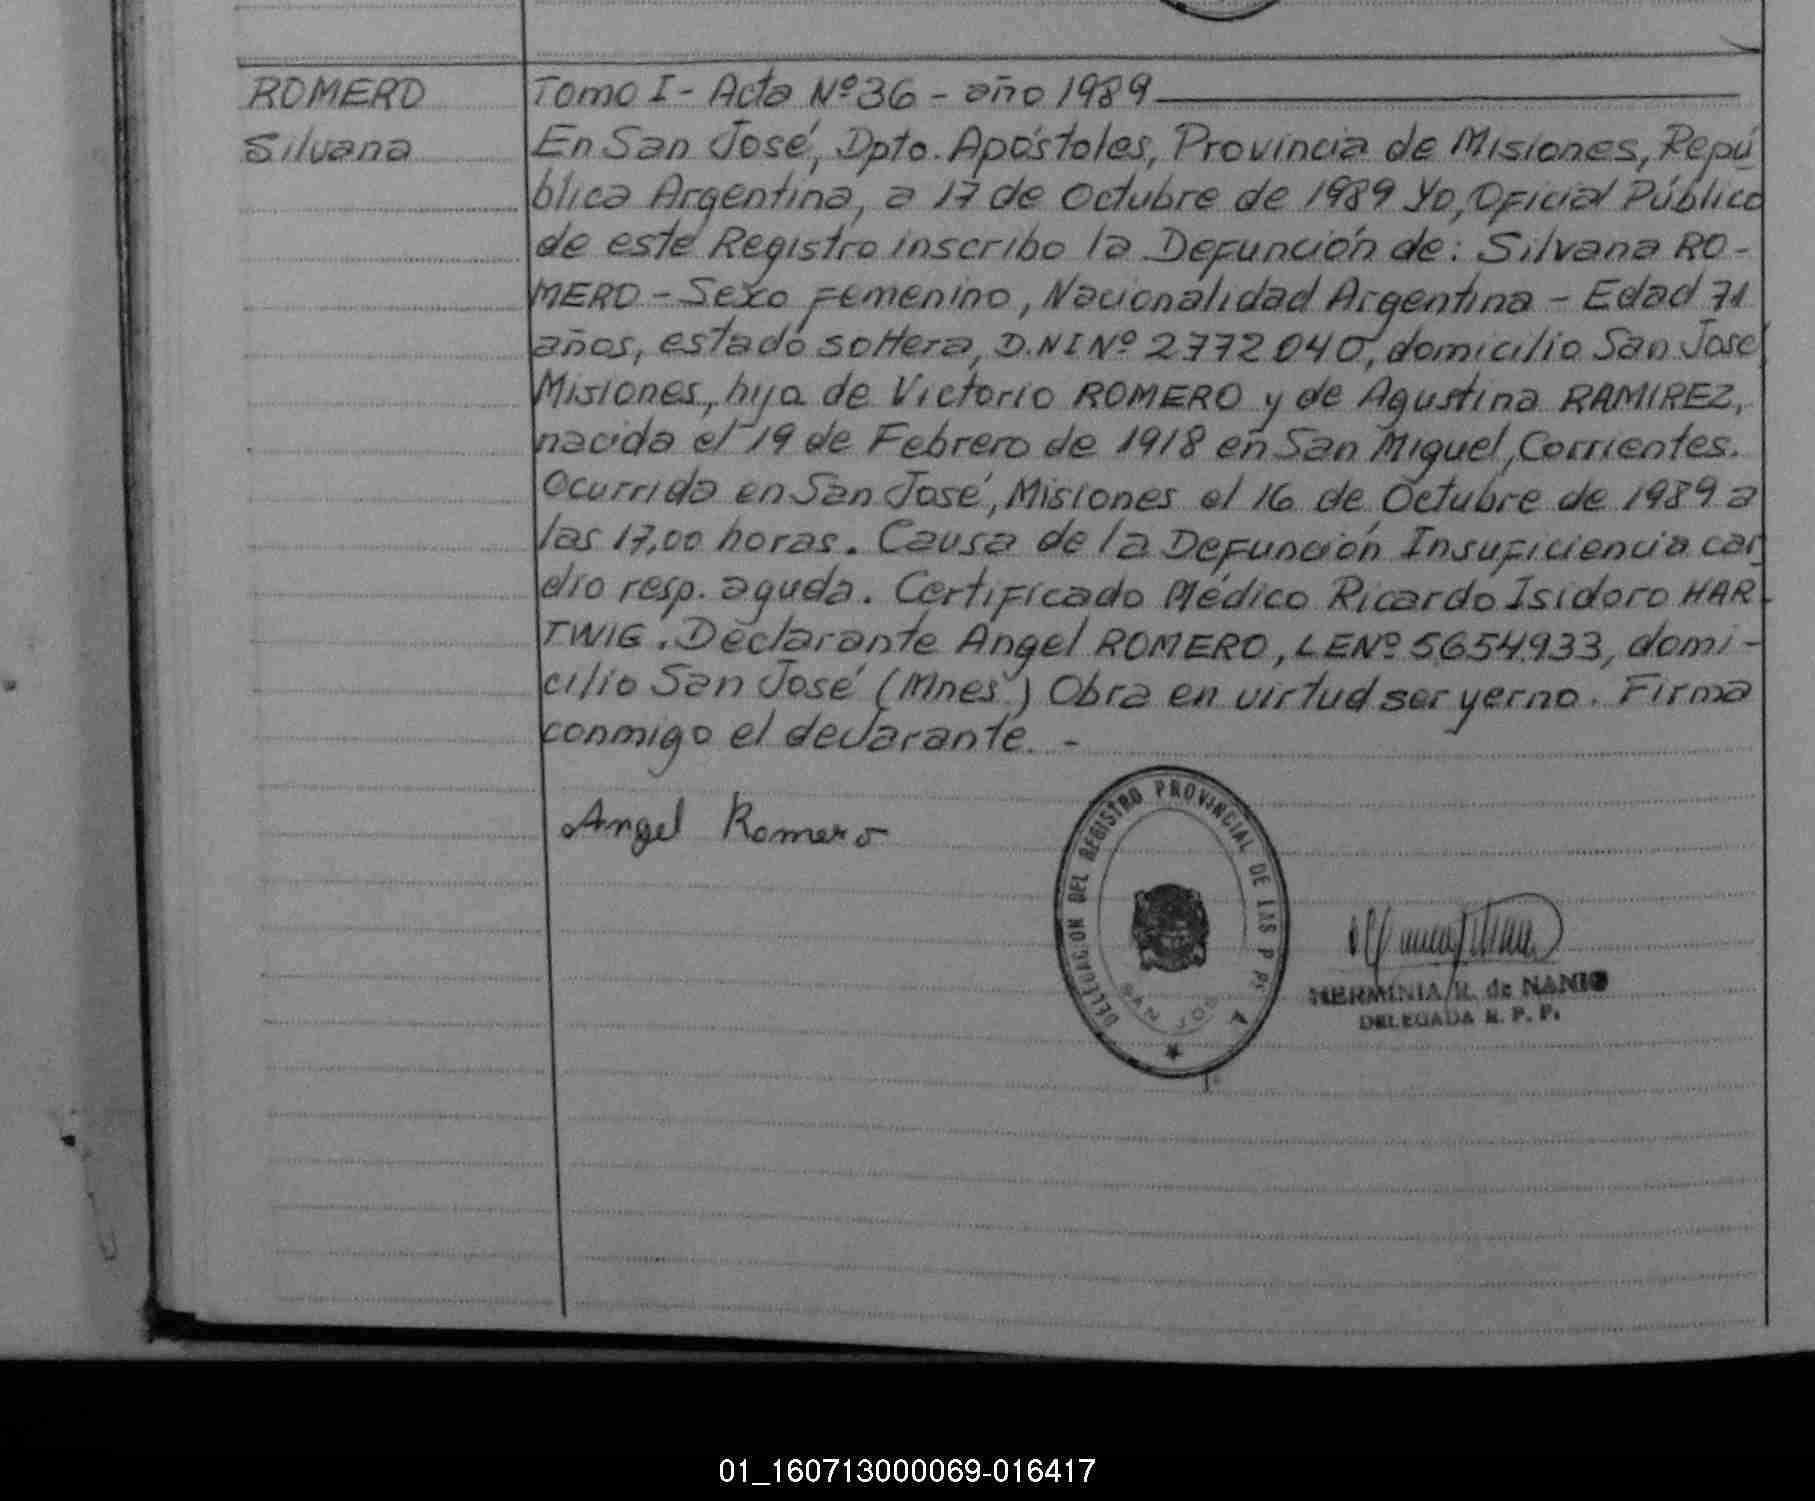 ROMERO
Silvana
Tomo I - Acta Nº 36 - año 1989
En San José, Dpto. Apóstoles, Provincia de Misiones, Repú
blica Argentina, a 17 de Octubre de 1989 Yo, Oficial Público
de este Registro inscribo la Defunción de: Silvana RO-
MERO - Sexo Femenino, Nacionalidad Argentina - Edad 71
años, estado soltera, D.N.I Nº 2772040, domicilio San José
Misiones, hija de Victorio ROMERO y de Agustina RAMIREZ,
nacida el 19 de Febrero de 1918 en San Miguel, Corrientes.
Ocurrida en San José, Misiones el 16 de Octubre de 1989 a
las 17,00 horas. Causa de la Defunción Insuficiencia car
dio resp. aguda. Certificado Médico Ricardo Isidoro HAR-
TWIG. Declarante Angel ROMERO, LE Nº 5.654.933, domi-
cilio San José (Mnes.) Obra en virtud ser yerno. Firma
conmigo el declarante. -
Angel Romero
DELEGACION DEL REGISTRO PROVINCIAL DE LAS P
SAN JOSE
HERMINIA R. de NANIO
DELEGADA R. P. P.
01_160713000069-016417